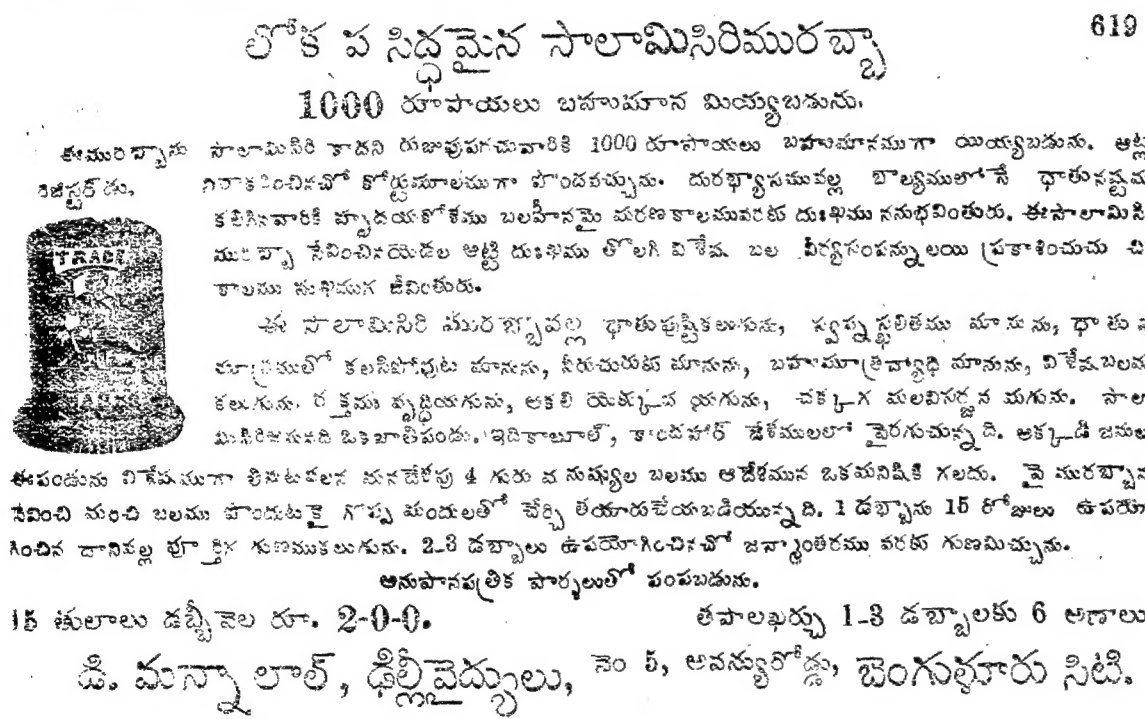 619
లోక ప సిద్ధమైన సాలామిసిరిమురబ్బా
1000 రూపాయలు బహుమాన మియ్యబడును.
ఈమురబ్బాను సాలామిసిరి కాదని రుజువుపరచువారికి 1000 రూపాయలు బహుమానముగా యియ్యబడును. అట్ల
రిజిస్టర్డు. నిరాకరించినచో కోర్టుమూలముగా పొందవచ్చును. దురభ్యాసమువల్ల బాల్యములోనే ధాతునష్టమ
కలిగినవారికి హృదయకోశము బలహీనమై మరణకాలమువరకు దుఃఖము ననుభవింతురు. ఈసాలామిసి
మురబ్బా సేవించినయెడల అట్టి దుఃఖము తొలగి విశేష బల వీర్యసంపన్నులయి ప్రకాశించుచు చి
కాలము సుఖముగ జీవింతురు.
TRADE
MARK
ఈ సాలామిసిరి మురబ్బావల్ల ధాతుపుష్టికలుగును, స్వప్నస్ఖలితము మానును, ధాతువ
మూత్రముతో కలసిపోవుట మానును, నీరుచురుకు మానును, బహుమూత్రవ్యాధి మానును, విశేషబలమ
కలుగును. రక్తము వృద్ధియగును, ఆకలి యెక్కువ యగును, చక్కగ మలవిసర్జన మగును. సాల
మిసిరిఅనునది ఒకజాతిపండు. ఇదికాబూల్, కాందహార్ దేశములలో పెరగుచున్నది. అక్కడి జనుల
ఈపండును విశేషముగా తినుటవలన మనదేశపు 4 గురు మనుష్యుల బలము ఆదేశమున ఒకమనిషికి గలదు. పై మురబ్బాన
సేవించి మంచి బలము పొందుటకై గొప్ప మందులతో చేర్చి తయారుచేయబడియున్నది. 1 డబ్బాను 15 రోజులు ఉపయో
గించిన దానివల్ల పూర్తిగ గుణముకలుగును. 2-3 డబ్బాలు ఉపయోగించినచో జన్మాంతరము వరకు గుణమిచ్చును.
అనుపానపత్రిక పార్సలుతో పంపబడును.
15 తులాలు డబ్బీవెల రూ. 2-0-0. తపాలఖర్చు 1-3 డబ్బాలకు 6 అణాలు
డి. మన్నాలాల్, ఢిల్లీవైద్యులు, నెం 5, అవన్యురోడ్డు, బెంగుళూరు సిటి.